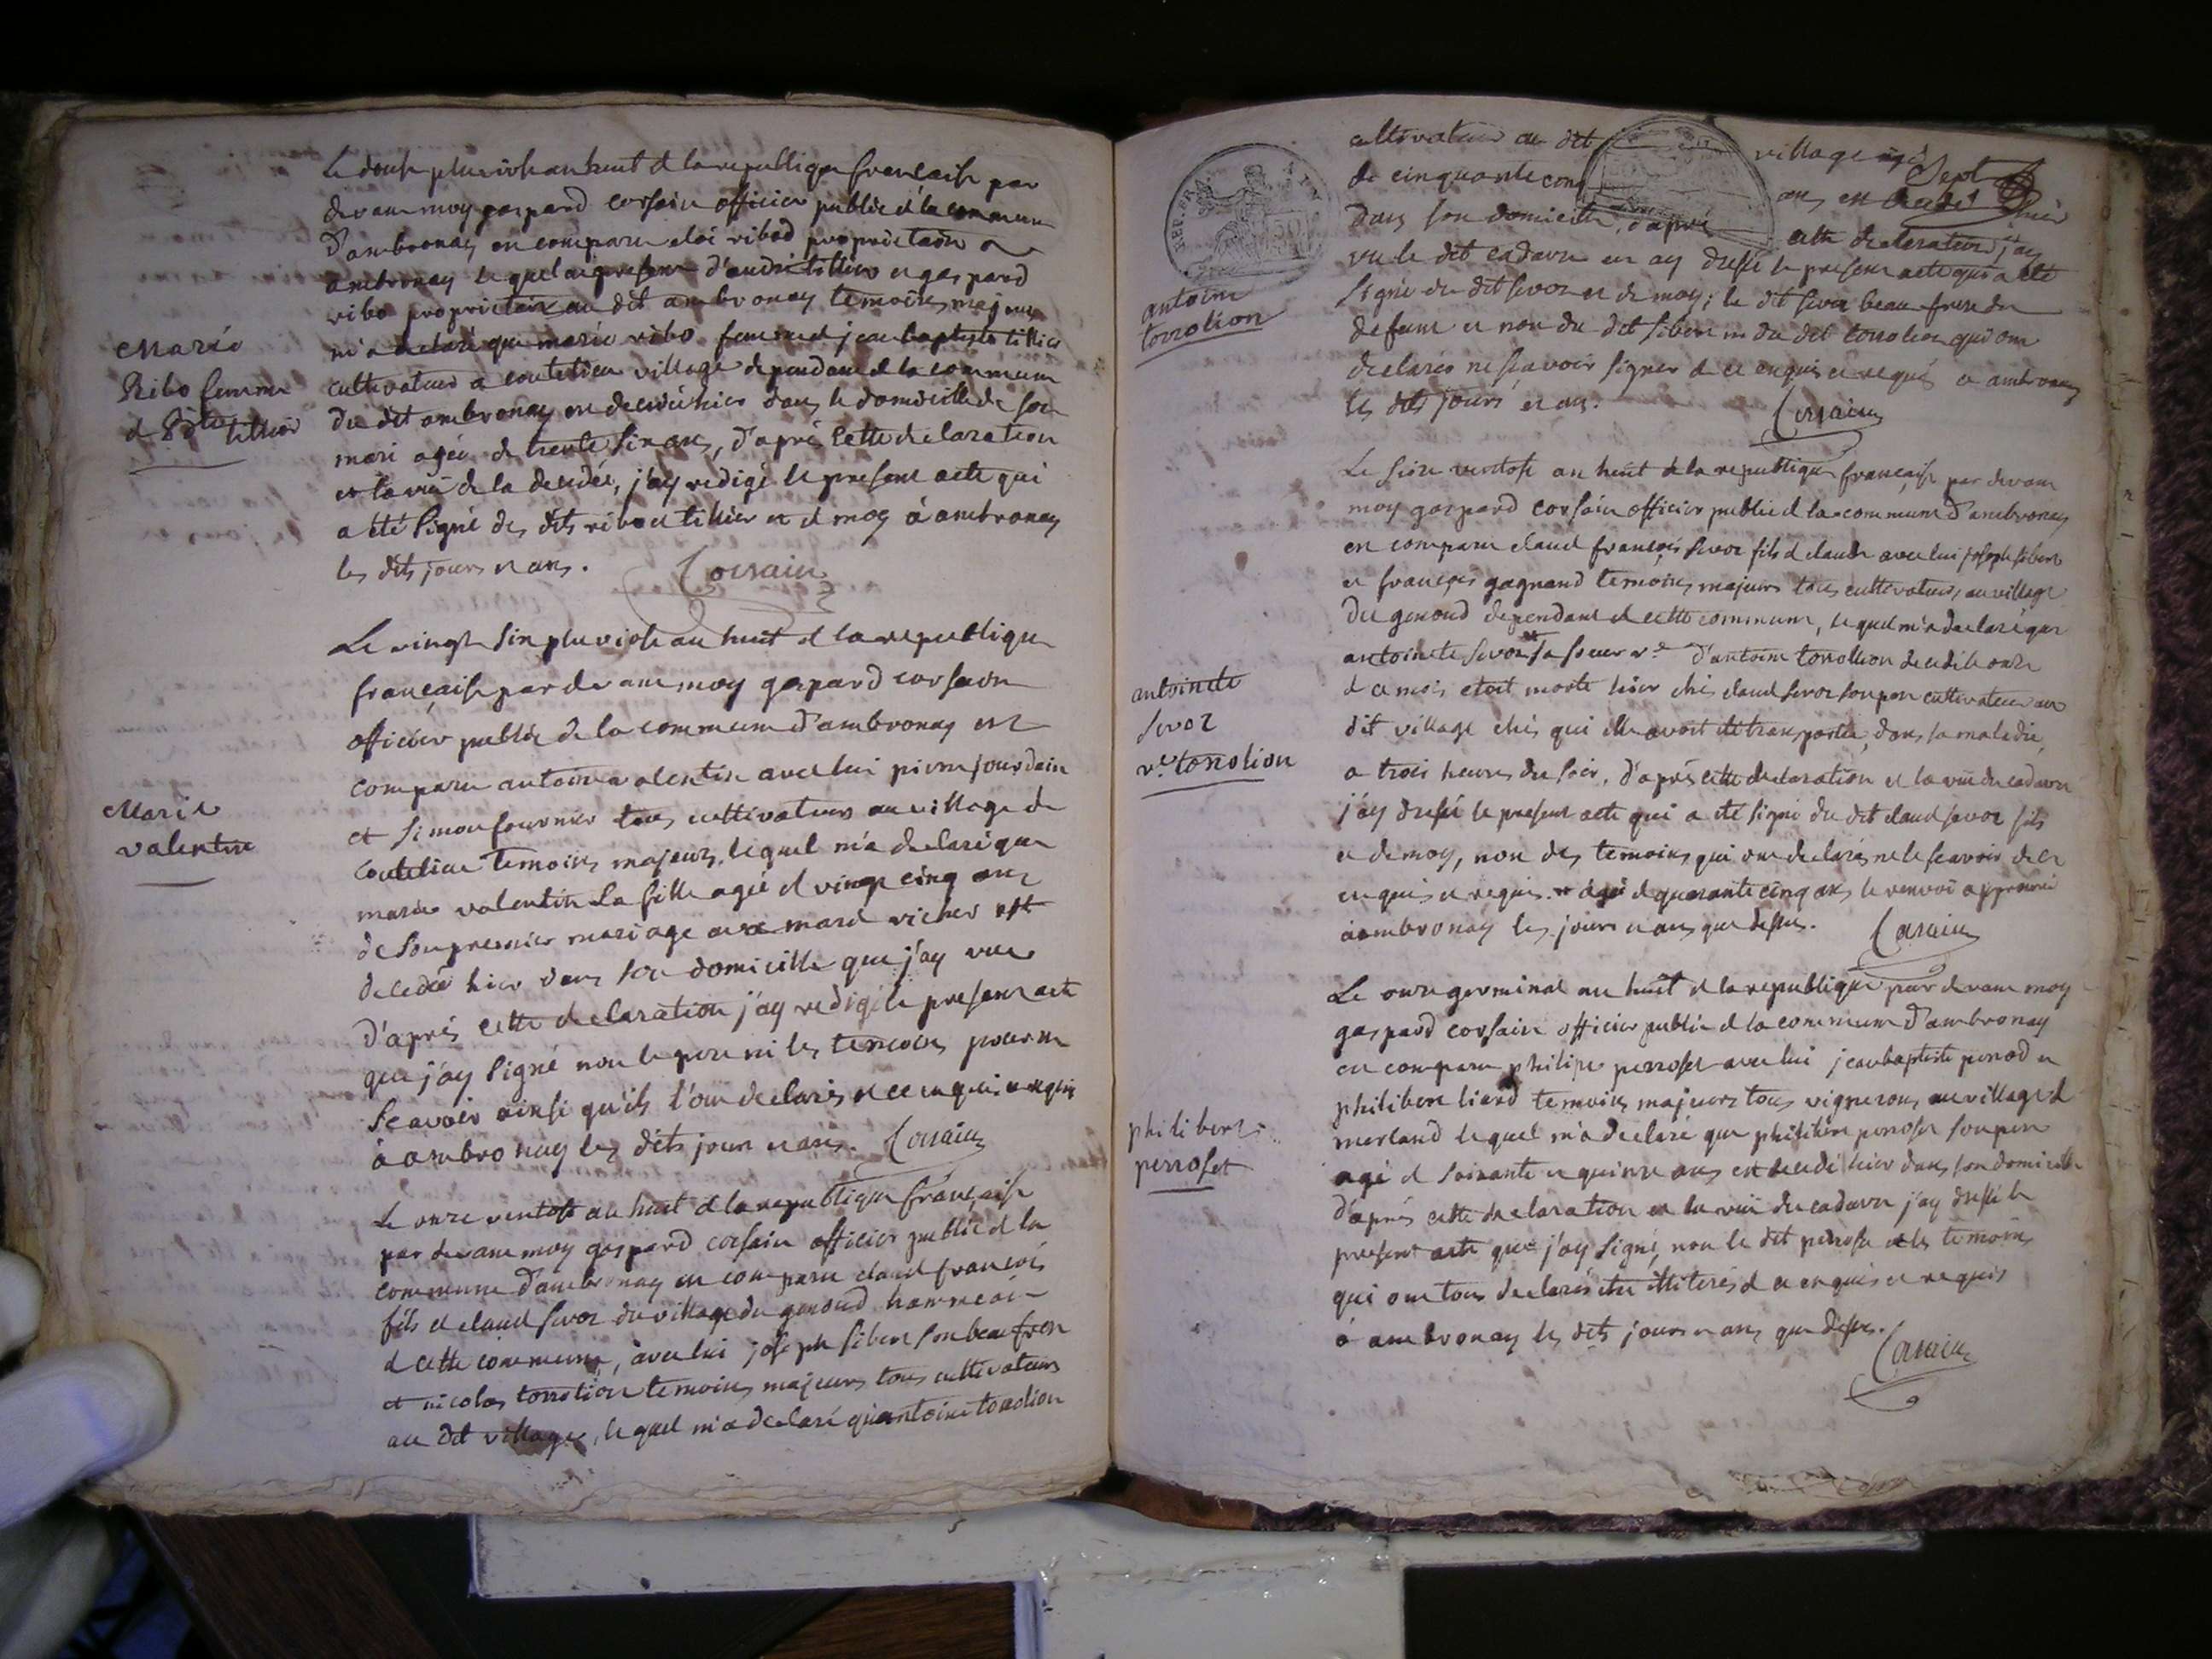 Le douse pluviose an huit de la republique francaise par
devant moy gaspard corsain officier public de la commune
d'ambronay en comparu eloi ribod proprietaire a
ambronay le quel en presence d'andré tillier et gaspard
ribo proprietaire au dit ambronay temoins majeurs
m'a declaré que marie ribo femme de jean baptiste tillier
cultivateur a coutelieu village dependant de la commune
du dit ambronay en decedée hier dans le domicille de son
mari agée de trente six ans, d'après cette declaration
et la vüe de la decedée, j'ay redigé le present acte qui
a été signé des dits ribo et tillier et de moy à ambronay
les dits jours et ans. Corsain
Marie
Ribo femme
d Bte tillier
Le vingt six pluviose an huit de la republique
française par devant moy gaspard corsain
officier public de la commune d'ambronay est
comparu antoine valentin avec lui pierre jourdain
et simon fournier tous cultivateurs au village de
coutelieu temoins majeurs, le quel m'a declaré que
marie valentin sa fille agée de vingt cinq ans
de son premier mariage avec mard richer est
decedée hier dans son domicille que j'ay vue
d'après cette declaration j'ay redigé le present acte
que j'ay signé non le pere ni les temoins pour ne
scavoir ainsi qu'ils l'ont declarés de ce enquis et requis
à ambronay les dits jour et ans. Corsain
Marie
valentin
Le onze ventose an huit de la republique française
par devant moy gaspard corsain officier public de la
commune d'ambronay en comparu claud françois
fils de claud sevoz du village du genoud hameau
de cette commune, avec lui joseph sibert son beau frere
et nicolas tonolion temoins majeurs tous cultivateurs
au dit village, le quel m'a declaré qu'antoine tonolion
cultivateur au dit village agé
de cinquante cinq sept ans en decedé hier
dans son domicille, d'après cette declaration j'ay
vu le dit cadavre en ay dressé le present acte qui a été
signé du dit sevoz et de moy; le dit sevoz beau frere du
defunt et non du dit sibert ni du dit tonolion qui ont
declarés ne scavoir signer de ce enquis et requis a ambronay
les dits jours et ans. Corsain
antoine
tonolion
Le seize ventose an huit de la republique française par devant
moy gaspard corsain officier public de la commune d'ambronay
en comparu claud françois sevoz fils de claude avec lui joseph sibert
et françois gagnand temoins majeurs tous cultivateurs, au village
du genoud dependant de cette commune, le quel m'a declaré que
antoinete sevoz sa soeur ve d'antoine tonolion decedé le onze
de ce mois etoit morte hier chés claud sevoz son pere cultivateur au
dit village chés qui elle avoit été transportée, dans sa maladie,
a trois heures du soir, d'après cette declaration et la vüe du cadavre
j'ay dressé le present acte qui a été signé du dit claud sevoz fils
et de moy, non des temoins qui ont declarés ne le scavoir de ce
enquis et requis. agée de quarante cinq ans le renvoi approuvé
à ambronay les jours et ans que dessus. Corsain
antoinete
sevoz
ve tonolion
Le onze germinal an huit de la republique par devant moy
gaspard corsain officier public de la commune d'ambronay
en comparu philipe perroset avec lui jean baptiste penod et
philibert liard temoins majeurs tous vignerons, au village de
merland le quel m'a declaré que philibert perroset son pere
agé de soixante et quinze ans en decedé hier dans son domicille
d'après cette declaration et la vüe du cadavre j'ay dressé le
present acte que j'ay signé, non le dit perroset et les temoins
qui ont tous declarés etre illiterés de ce enquis et requis
à ambronay les dits jours et ans que dessus. Corsain
philibert
perroset